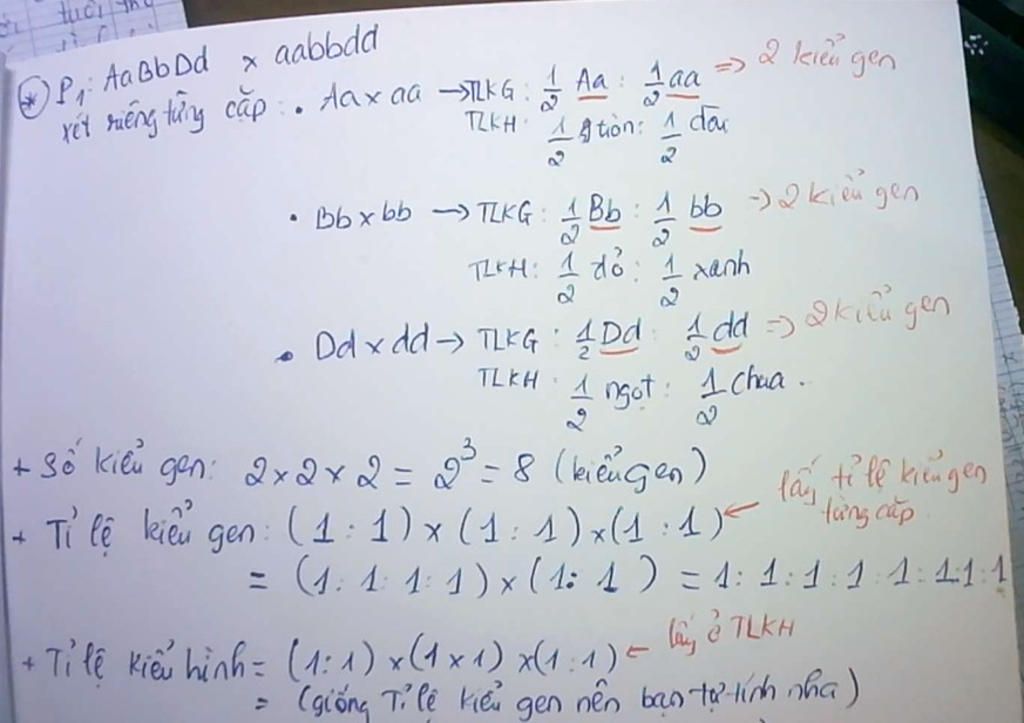 * P1: AaBbDd x aabbdd
xét riêng từng cặp: • Aa x aa → TLKG: 1/2 Aa : 1/2 aa => 2 kiểu gen
TLKH: 1/2 tròn: 1/2 dài
• Bb x bb → TLKG: 1/2 Bb : 1/2 bb → 2 kiểu gen
TLKH: 1/2 đỏ: 1/2 xanh
• Dd x dd → TLKG: 1/2 Dd : 1/2 dd => 2 kiểu gen
TLKH: 1/2 ngọt: 1/2 chua.
+ Số kiểu gen: 2 x 2 x 2 = 2³ = 8 (kiểu gen)
+ Tỉ lệ kiểu gen: (1 : 1) x (1 : 1) x (1 : 1) ← lấy tỉ lệ kiểu gen
từng cặp
= (1: 1: 1: 1) x (1: 1) = 1: 1: 1: 1: 1: 1: 1: 1
+ Tỉ lệ kiểu hình = (1:1) x (1 x 1) x (1:1) ← lấy ở TLKH
= (giống Tỉ lệ kiểu gen nên bạn tự tính nha)